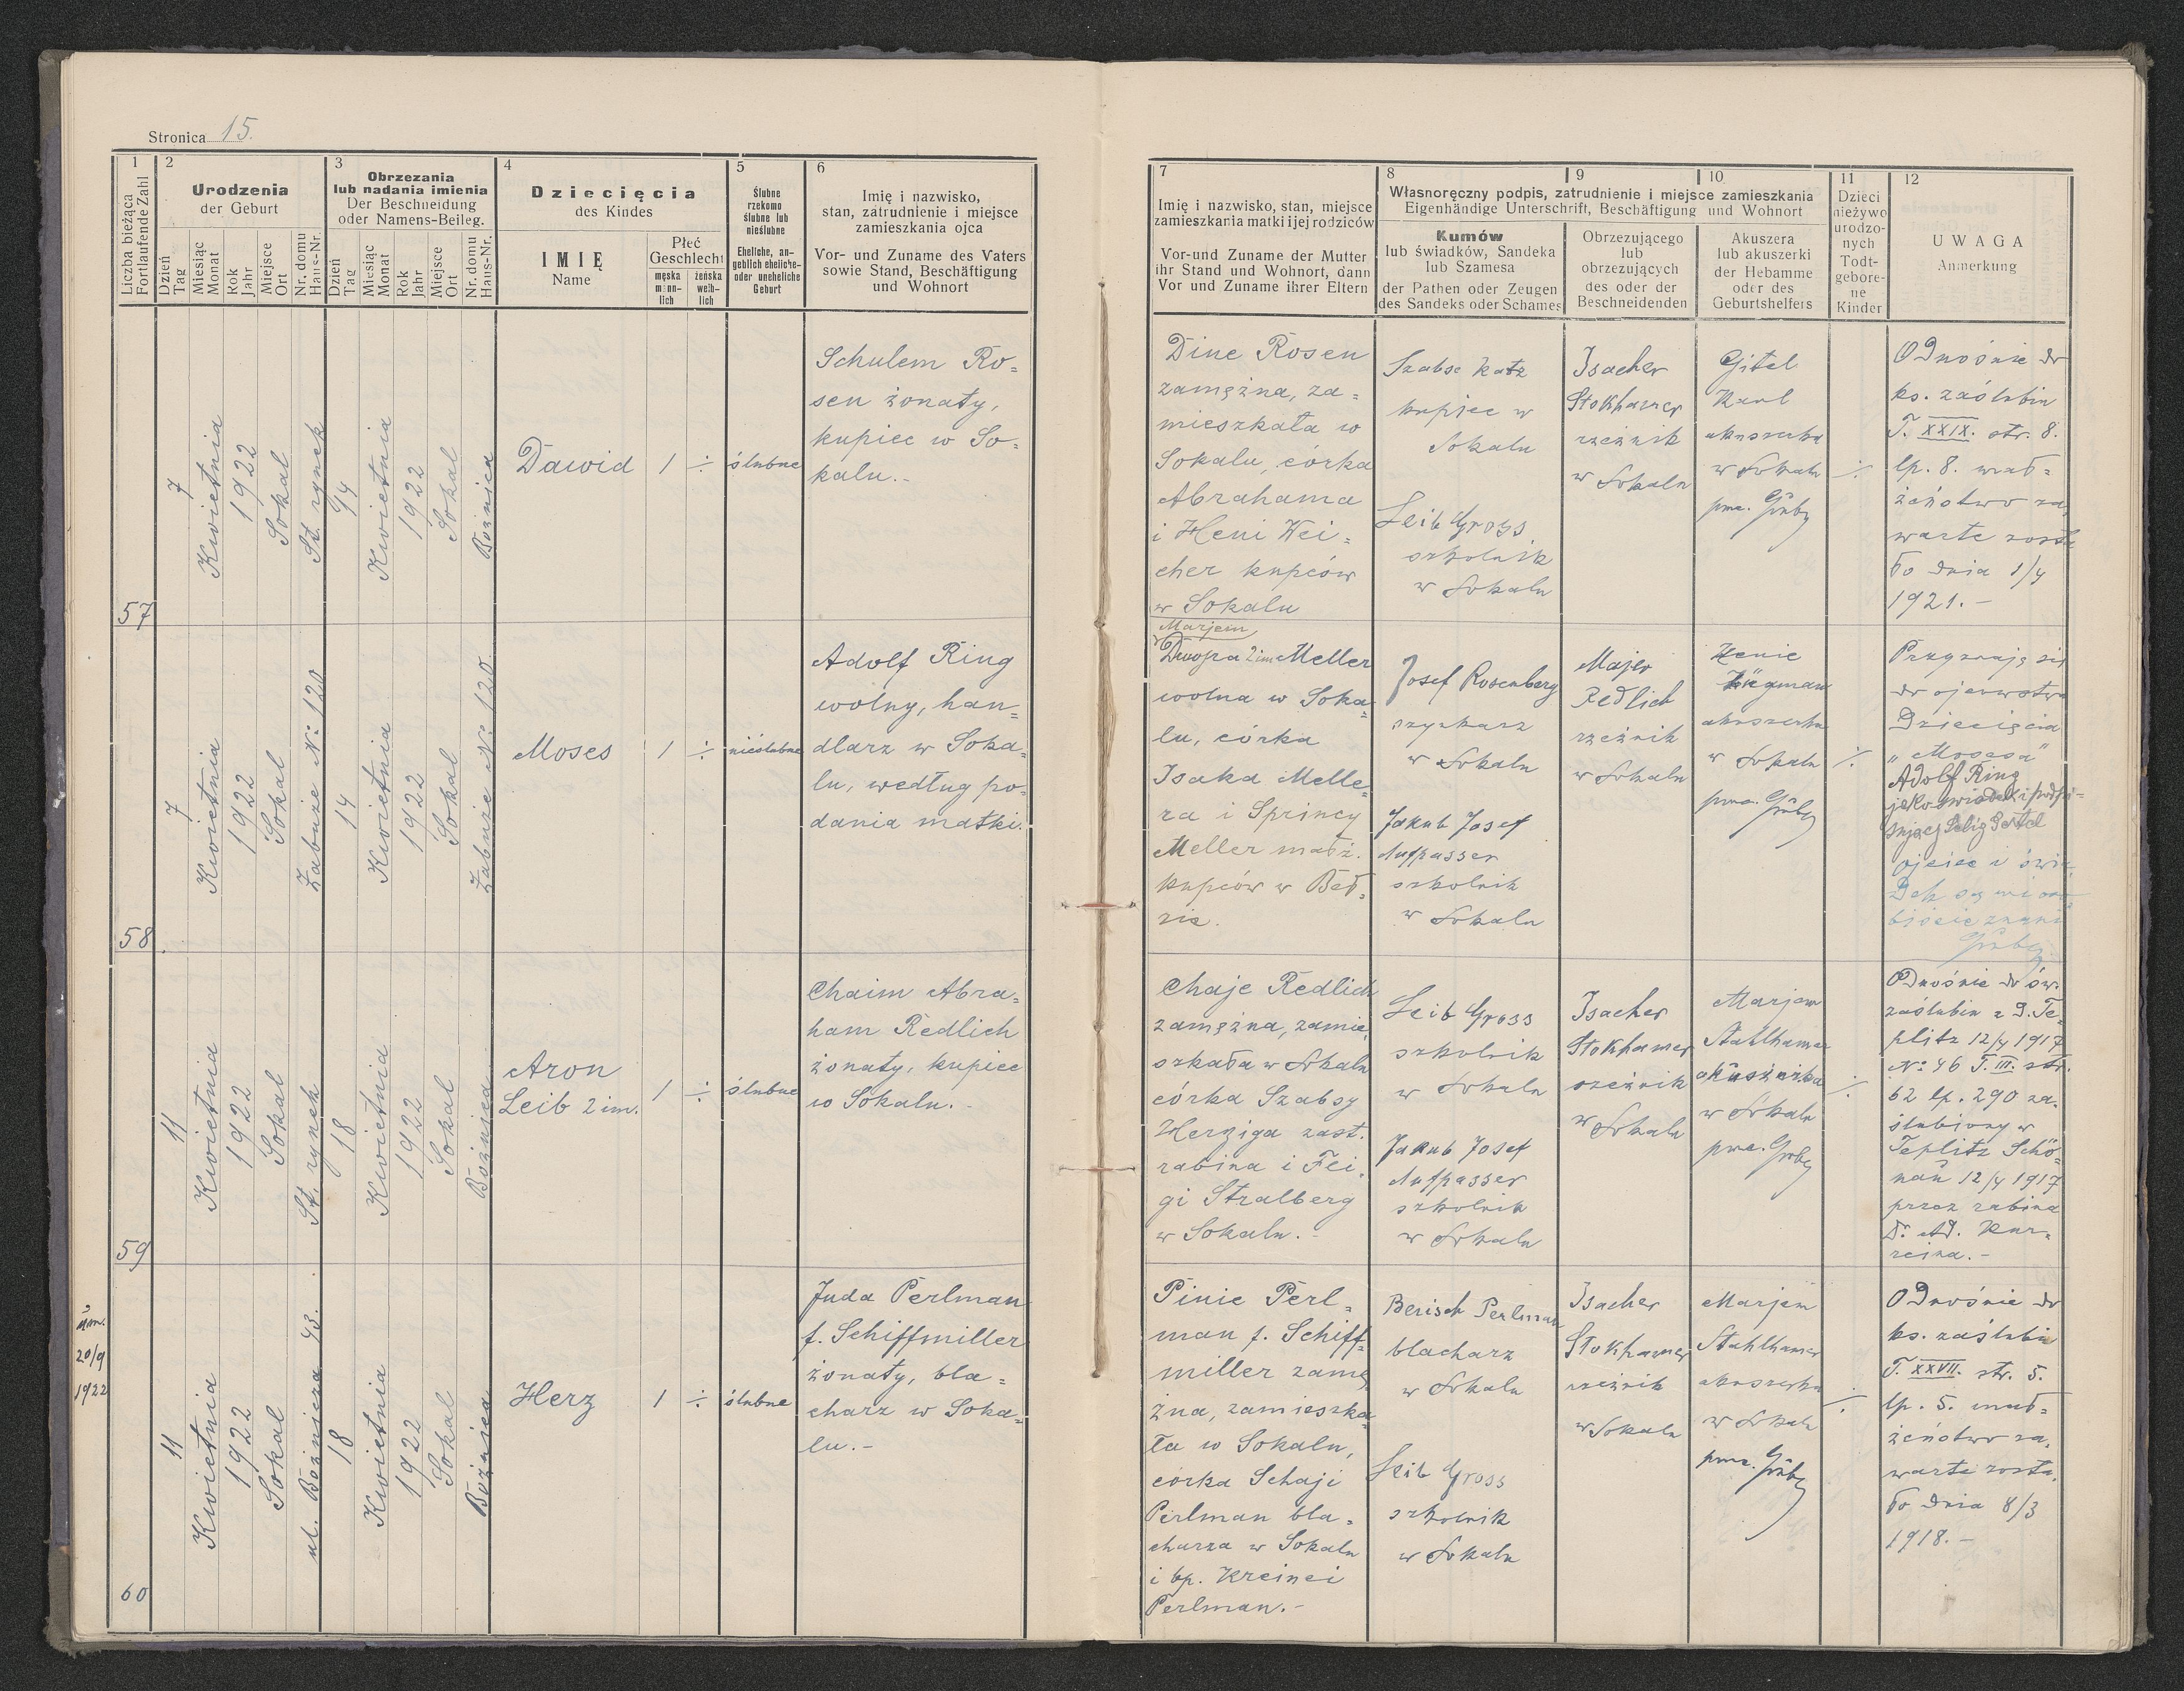 Stronica 15.
1
Liczba bieżąca
Fortlaufende Zahl
2
Urodzenia
der Geburt
Dzień
Tag
Miesiąc
Monat
Rok
Jahr
Miejsce
Ort
Nr. domu
Haus-Nr.
3
Obrzezania
lub nadania imienia
Der Beschneidung
oder Namens-Beileg.
Dzień
Tag
Miesiąc
Monat
Rok
Jahr
Miejsce
Ort
Nr. domu
Haus-Nr.
4
Dziecięcia
des Kindes
IMIĘ
Name
Płeć
Geschlecht
męska
männ-
lich
żeńska
weib-
lich
5
Ślubne
rzekomo
ślubne lub
nieślubne
Eheliche, an-
geblich eheliche-
oder uneheliche
Geburt
6
Imię i nazwisko,
stan, zatrudnienie i miejsce
zamieszkania ojca
Vor- und Zuname des Vaters
sowie Stand, Beschäftigung
und Wohnort
7
Imię i nazwisko, stan, miejsce
zamieszkania matki i jej rodziców
Vor-und Zuname der Mutter
ihr Stand und Wohnort, dann
Vor und Zuname ihrer Eltern
8
9
10
Własnoręczny podpis, zatrudnienie i miejsce zamieszkania
Eigenhändige Unterschrift, Beschäftigung und Wohnort
Kumów
lub świadków, Sandeka
lub Szamesa
der Pathen oder Zeugen
des Sandeks oder Schames
Obrzezującego
lub
obrzezujących
des oder der
Beschneidenden
Akuszera
lub akuszerki
der Hebamme
oder des
Geburtshelfers
11
Dzieci
nieżywo
urodzo-
nych
Todt-
gebore-
ne
Kinder
12
UWAGA
Anmerkung
57
7
Kwietnia
1922
Sokal
St. rynek
14
Kwietnia
1922
Sokal
Bożnica
Dawid
1
÷
ślubne
Schulem Ro=
sen żonaty,
kupiec w So=
kalu.-
Dine Rosen
zamężna, za=
mieszkała w
Sokalu, córka
Abrahama
i Heni Wei=
cher kupców
w Sokalu
Szabse Katz
kupiec w
Sokalu
Leib Gross
szkolnik
w Sokalu
Isacher
Stokhamer
rzeźnik
w Sokalu
Gitel
Karl
akuszerka
w Sokalu
÷
Odnośnie do
ks. zaślubin
T. XXIX. str. 8.
lp. 8. mał=
żeństwo za=
warte zosta
ło dnia 1/4
1921.-
58
7
Kwietnia
1922
Sokal
Żabuże No 120
14
Kwietnia
1922
Sokal
Żabuże No 120.
Moses
1
÷
nieślubne
Adolf Ring
wolny, han=
dlarz w Soka=
lu, według po=
dania matki.
Marjem
Dwojra 2im Meller
wolna w Soka=
lu, córka
Isaka Melle=
ra i Sprincy
Meller małż.
kupców w Beł=
zie.
Josef Rosenberg
szynkarz
w Sokalu
Jakub Josef
Aufpasser
szkolnik
w Sokalu
Majer
Redlich
rzeźnik
w Sokalu
Henie
akuszerka
w Sokalu
÷
Przyznaję się
do ojcowstwa
Dziecięcia
"Mosesa"
Adolf Ring
jako świadek i podpi=
sujący Selig Sertel
ojciec i świa=
dek są mi oso=
biście znani
59
11
Kwietnia
1922
Sokal
St. rynek
18
Kwietnia
1922
Sokal
Bożnica
Aron
Leib 2 im.
1
÷
ślubne
Chaim Abra=
ham Redlich
żonaty, kupiec
w Sokalu.-
Chaje Redlich
zamężna, zamie
szkała w Sokalu
córka Szabsy
Herziga zast.
rabina i Fei=
gi Stralberg
w Sokalu.-
Leib Gross
szkolnik
w Sokalu
Jakub Josef
Aufpasser
szkolnik
w Sokalu
Isacher
Stokhamer
rzeźnik
w Sokalu
Marjem
Stahlhamer
akuszerka
w Sokalu
÷
Odnośnie do św.
zaślubin z d. Te=
plitz 12/4 1917
No 46 T. III. str.
62 lp. 290 za=
ślubiony w
Teplitz Schö=
nau 12/4 1917
przez rabina
Dr Ad. Kur=
reina.-
um.
20/9
1922
60
11
Kwietnia
1922
Sokal
ul. Bożnicza 43.
18
Kwietnia
1922
Sokal
Bożnica
Herz
1
÷
ślubne
Juda Perlman
f. Schiffmiller
żonaty, bla=
charz w Soka=
lu.-
Pinie Perl=
man f. Schiff=
miller zamę
żna, zamieszka
ła w Sokalu,
córka Schaji
Perlman bla=
charza w Sokalu
i bp. Kreinci
Perlman.-
Berisch Perlman
blacharz
w Sokalu
Leib Gross
szkolnik
w Sokalu
Isacher
Stokhamer
rzeźnik
w Sokalu
Marjem
Stahlhamer
akuszerka
w Sokalu
÷
Odnośnie do
ks. zaślubin
T. XXVII. str. 5.
lp. 5. mał=
żeństwo za=
warte zosta=
ło dnia 8/3
1918.-